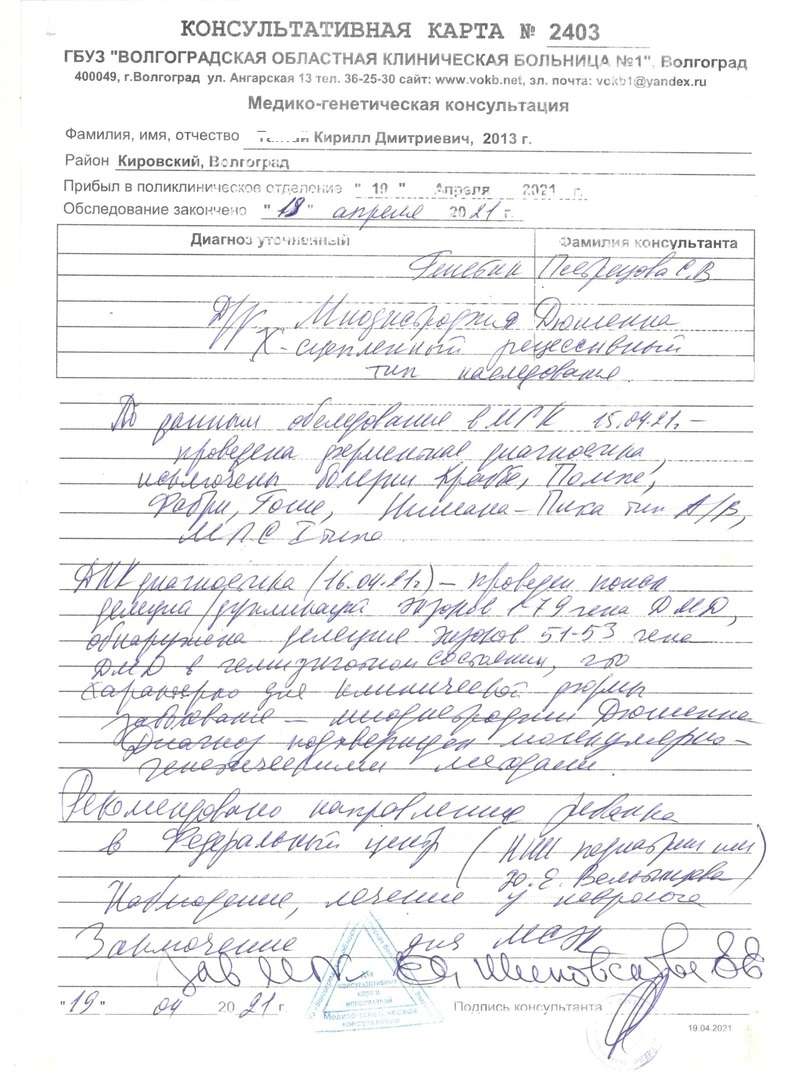 КОНСУЛЬТАТИВНАЯ КАРТА № 2403
ГБУЗ "ВОЛГОГРАДСКАЯ ОБЛАСТНАЯ КЛИНИЧЕСКАЯ БОЛЬНИЦА №1", Волгоград
400049, г.Волгоград ул. Ангарская 13 тел. 36-25-30 сайт: www.vokb.net, эл. почта: vokb1@yandex.ru
Медико-генетическая консультация
Фамилия, имя, отчество Кирилл Дмитриевич, 2013 г.
Район Кировский, Волгоград
Прибыл в поликлиническое отделение " 19 " Апреля 2021 г.
Обследование закончено "19" апреля 2021 г.
Диагноз уточненный Фамилия консультанта
Генетик С.В
Д/з Миодистрофия Дюшенна
Х-сцепленный рецессивный
тип наследования.
По данным обследования в МГК 15.04.21г –
проведена ферментная диагностика,
исключены болезни Краббе, Помпе,
Фабри, Гоше, Нимана-Пика тип А/В,
МПС I типа
ДНК диагностика (16.04.21г) – проведен поиск
делеций/дупликаций экзонов 1-79 гена DMD,
обнаружена делеция экзонов 51-53 гена
DMD в гемизиготном состоянии, что
характерно для клинической формы
заболевания – миодистрофии Дюшенна
Диагноз подтвержден молекулярно-
генетическими методами.
Рекомендовано направление ребенка
в Федеральный центр (НИИ педиатрии им
Ю.Е. Вельтищева)
Наблюдение, лечение у невролога
Заключение для МСЭК
Зав МГК
"19" 04 2021 г. Подпись консультанта
19.04.2021